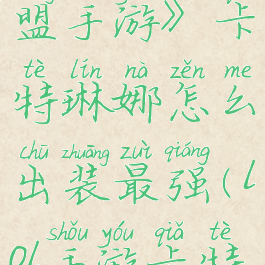 盟手游》卡
tè lín nà zěn me
特琳娜怎么
chū zhuāng zuì qiáng
出装最强(l
shǒu yóu qiǎ tè
ol手游卡特